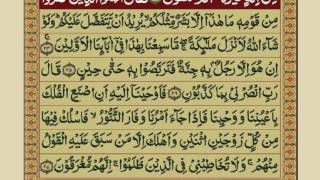 مِنْ قَوْمِهٖ مَا هٰذَاۤ اِلَّا بَشَرٌ مِّثْلُكُمْ یُرِیْدُ اَنْ یَّتَفَضَّلَ عَلَیْكُمْ وَلَوْ
شَآءَ اللّٰهُ لَاَنْزَلَ مَلٰٓئِكَةً مَّا سَمِعْنَا بِهٰذَا فِیْۤ اٰبَآئِنَا الْاَوَّلِیْنَ ۝۲۴
اِنْ هُوَ اِلَّا رَجُلٌۢ بِهٖ جِنَّةٌ فَتَرَبَّصُوْا بِهٖ حَتّٰی حِیْنٍ ۝۲۵ قَالَ
رَبِّ انْصُرْنِیْ بِمَا كَذَّبُوْنِ ۝۲۶ فَاَوْحَیْنَاۤ اِلَیْهِ اَنِ اصْنَعِ الْفُلْكَ
بِاَعْیُنِنَا وَوَحْیِنَا فَاِذَا جَآءَ اَمْرُنَا وَفَارَ التَّنُّوْرُ فَاسْلُكْ فِیْهَا
مِنْ كُلٍّ زَوْجَیْنِ اثْنَیْنِ وَاَهْلَكَ اِلَّا مَنْ سَبَقَ عَلَیْهِ الْقَوْلُ
مِنْهُمْ وَلَا تُخَاطِبْنِیْ فِی الَّذِیْنَ ظَلَمُوْا اِنَّهُمْ مُّغْرَقُوْنَ ۝۲۷